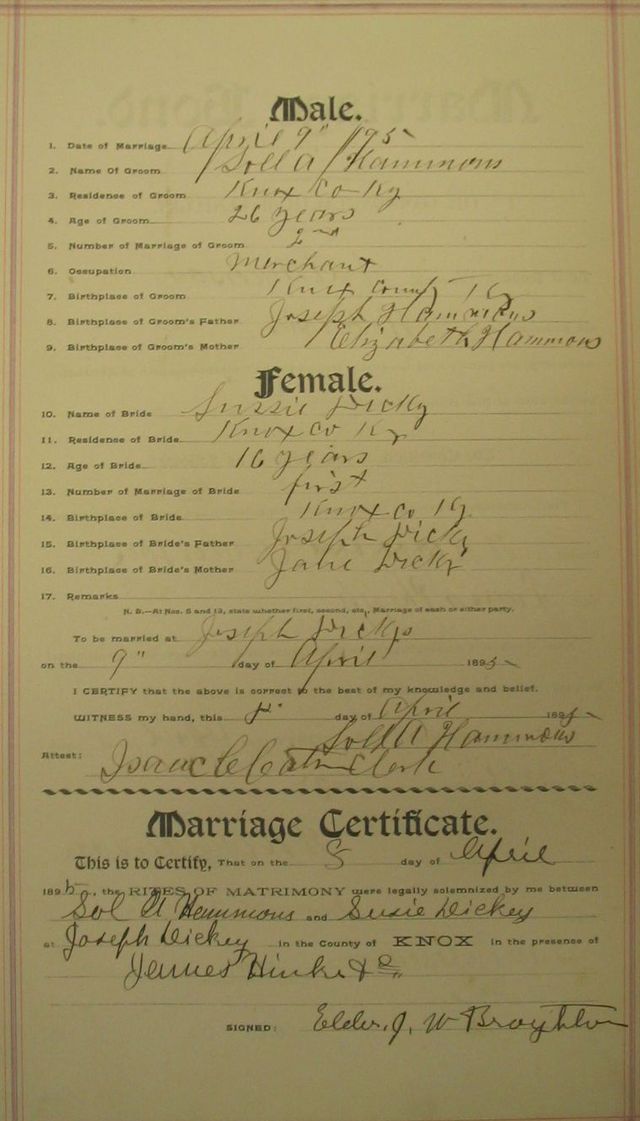 Male.
1. Date of Marriage April 9" 1895
2. Name Of Groom Soll A Hammons
3. Residence of Groom Knox Co Ky
4. Age of Groom 26 years
5. Number of Marriage of Groom 2nd
6. Occupation Merchant
7. Birthplace of Groom Knox County Ky
8. Birthplace of Groom's Father Joseph Hammons
9. Birthplace of Groom's Mother Elizabeth Hammons
Female.
10. Name of Bride Sussie Dicky
11. Residence of Bride Knox Co Ky
12. Age of Bride 16 years
13. Number of Marriage of Bride first
14. Birthplace of Bride Knox Co Ky
15. Birthplace of Bride's Father Joseph Dicky
16. Birthplace of Bride's Mother Jane Dicky
17. Remarks
N. B.—At Nos. 5 and 13, state whether first, second, etc., Marriage of each or either party.
To be married at Joseph Dickys
on the 9" day of April 1895
I CERTIFY that the above is correct to the best of my knowledge and belief.
WITNESS my hand, this day of April 1895
Soll A Hammons
Attest: Isaac Clerk
Marriage Certificate.
This is to Certify, That on the day of April
1895, the RITES OF MATRIMONY were legally solemnized by me between
Sol A Hammons and Susie Dickey
at Joseph Dickey in the County of KNOX in the presence of
James
SIGNED: Elder. J. W Broughton